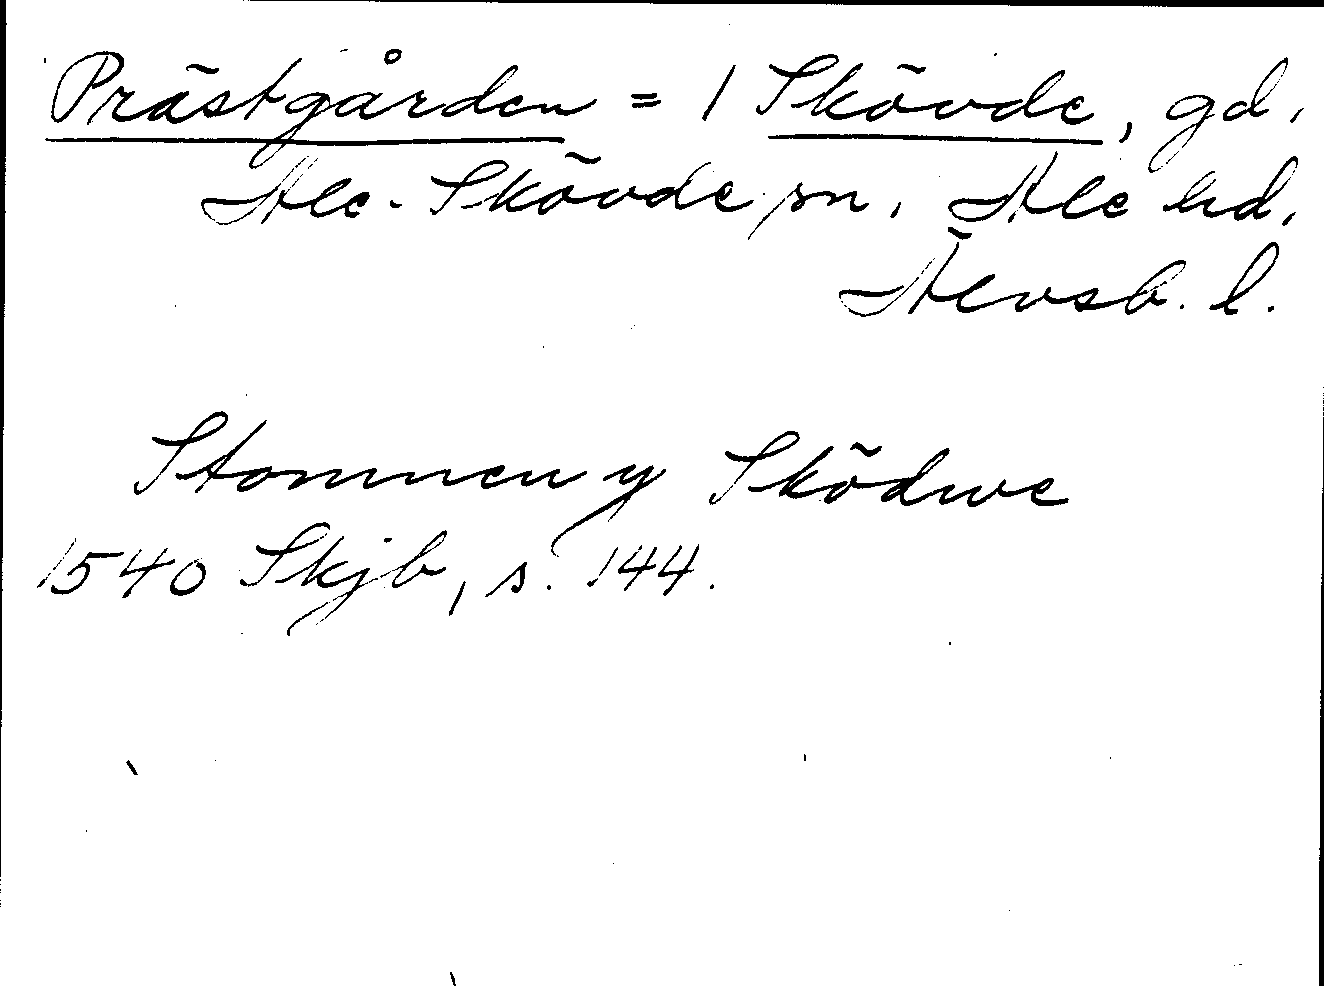 Prästgården = 1 Skövde, gd,
Ale-Skövde sn, Ale hd,
Älvsb. l.
Stommen y Sködwe
1540 Skjb, s. 144.